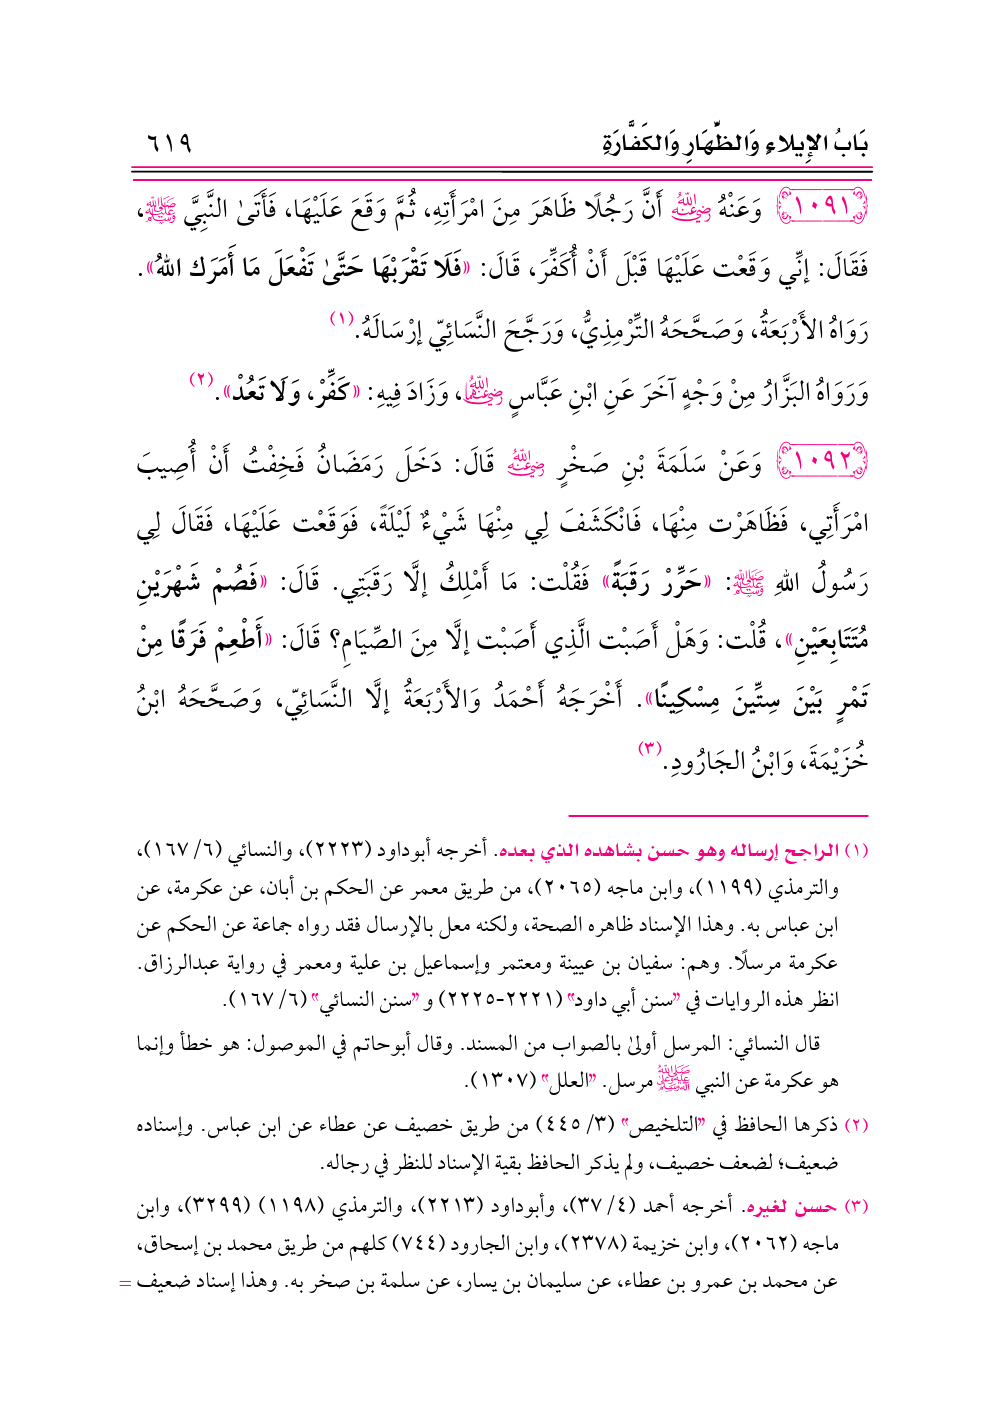 بَابُ الإِيلاءِ وَالظِّهَارِ وَالكَفَّارَةِ ٦١٩
١٠٩١ وَعَنْهُ رضي الله عنه أَنَّ رَجُلًا ظَاهَرَ مِنَ امْرَأَتِهِ، ثُمَّ وَقَعَ عَلَيْهَا، فَأَتَىٰ النَّبِيَّ ﷺ،
فَقَالَ: إنِّي وَقَعْت عَلَيْهَا قَبْلَ أَنْ أُكَفِّرَ، قَالَ: «فَلَا تَقْرَبْهَا حَتَّىٰ تَفْعَلَ مَا أَمَرَك اللهُ».
رَوَاهُ الأَرْبَعَةُ، وَصَحَّحَهُ التِّرْمِذِيُّ، وَرَجَّحَ النَّسَائِيّ إرْسَالَهُ.(١)
وَرَوَاهُ البَزَّارُ مِنْ وَجْهٍ آخَرَ عَنِ ابْنِ عَبَّاسٍ رضي الله عنهما، وَزَادَ فِيهِ: «كَفِّرْ، وَلَا تَعُدْ». (٢)
١٠٩٢ وَعَنْ سَلَمَةَ بْنِ صَخْرٍ رضي الله عنه قَالَ: دَخَلَ رَمَضَانُ فَخِفْتُ أَنْ أُصِيبَ
امْرَأَتِي، فَظَاهَرْت مِنْهَا، فَانْكَشَفَ لِي مِنْهَا شَيْءٌ لَيْلَةً، فَوَقَعْت عَلَيْهَا، فَقَالَ لِي
رَسُولُ اللهِ ﷺ: «حَرِّرْ رَقَبَةً» فَقُلْت: مَا أَمْلِكُ إلَّا رَقَبَتِي. قَالَ: «فَصُمْ شَهْرَيْنِ
مُتَتَابِعَيْنِ»، قُلْت: وَهَلْ أَصَبْت الَّذِي أَصَبْت إلَّا مِنَ الصِّيَامِ؟ قَالَ: «أَطْعِمْ فَرَقًا مِنْ
تَمْرٍ بَيْنَ سِتِّينَ مِسْكِينًا». أَخْرَجَهُ أَحْمَدُ وَالأَرْبَعَةُ إلَّا النَّسَائِيّ، وَصَحَّحَهُ ابْنُ
خُزَيْمَةَ، وَابْنُ الجَارُودِ.(٣)
(١) الراجح إرساله وهو حسن بشاهده الذي بعده. أخرجه أبوداود (٢٢٢٣)، والنسائي (٦/ ١٦٧)،
والترمذي (١١٩٩)، وابن ماجه (٢٠٦٥)، من طريق معمر عن الحكم بن أبان، عن عكرمة، عن
ابن عباس به. وهذا الإسناد ظاهره الصحة، ولكنه معل بالإرسال فقد رواه جماعة عن الحكم عن
عكرمة مرسلًا. وهم: سفيان بن عيينة ومعتمر وإسماعيل بن علية ومعمر في رواية عبدالرزاق.
انظر هذه الروايات في "سنن أبي داود" (٢٢٢١-٢٢٢٥) و "سنن النسائي" (٦/ ١٦٧).
قال النسائي: المرسل أولىٰ بالصواب من المسند. وقال أبوحاتم في الموصول: هو خطأ وإنما
هو عكرمة عن النبي ﷺ مرسل. "العلل" (١٣٠٧).
(٢) ذكرها الحافظ في "التلخيص" (٣/ ٤٤٥) من طريق خصيف عن عطاء عن ابن عباس. وإسناده
ضعيف؛ لضعف خصيف، ولم يذكر الحافظ بقية الإسناد للنظر في رجاله.
(٣) حسن لغيره. أخرجه أحمد (٤/ ٣٧)، وأبوداود (٢٢١٣)، والترمذي (١١٩٨) (٣٢٩٩)، وابن
ماجه (٢٠٦٢)، وابن خزيمة (٢٣٧٨)، وابن الجارود (٧٤٤) كلهم من طريق محمد بن إسحاق،
عن محمد بن عمرو بن عطاء، عن سليمان بن يسار، عن سلمة بن صخر به. وهذا إسناد ضعيف =